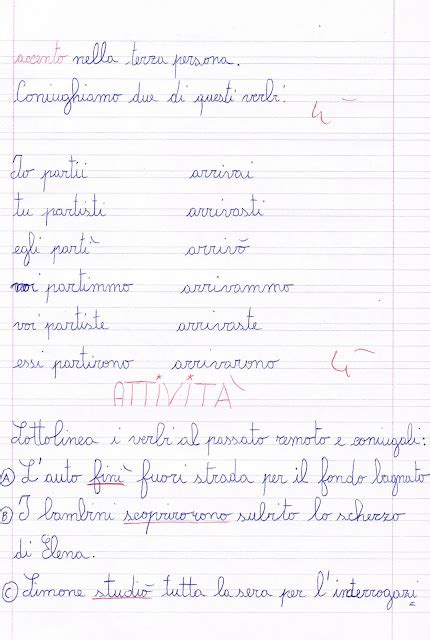 accento nella terza persona.
Coniughiamo due di questi verbi:
Io partii arrivai
tu partisti arrivasti
egli partì arrivò
noi partimmo arrivammo
voi partiste arrivaste
essi partirono arrivarono
ATTIVITÀ
Sottolinea i verbi al passato remoto e coniugali:
A L'auto finì fuori strada per il fondo bagnato
B I bambini scoprirorono subito lo scherzo
di Elena.
C Simone studiò tutta la sera per l'interrogazi